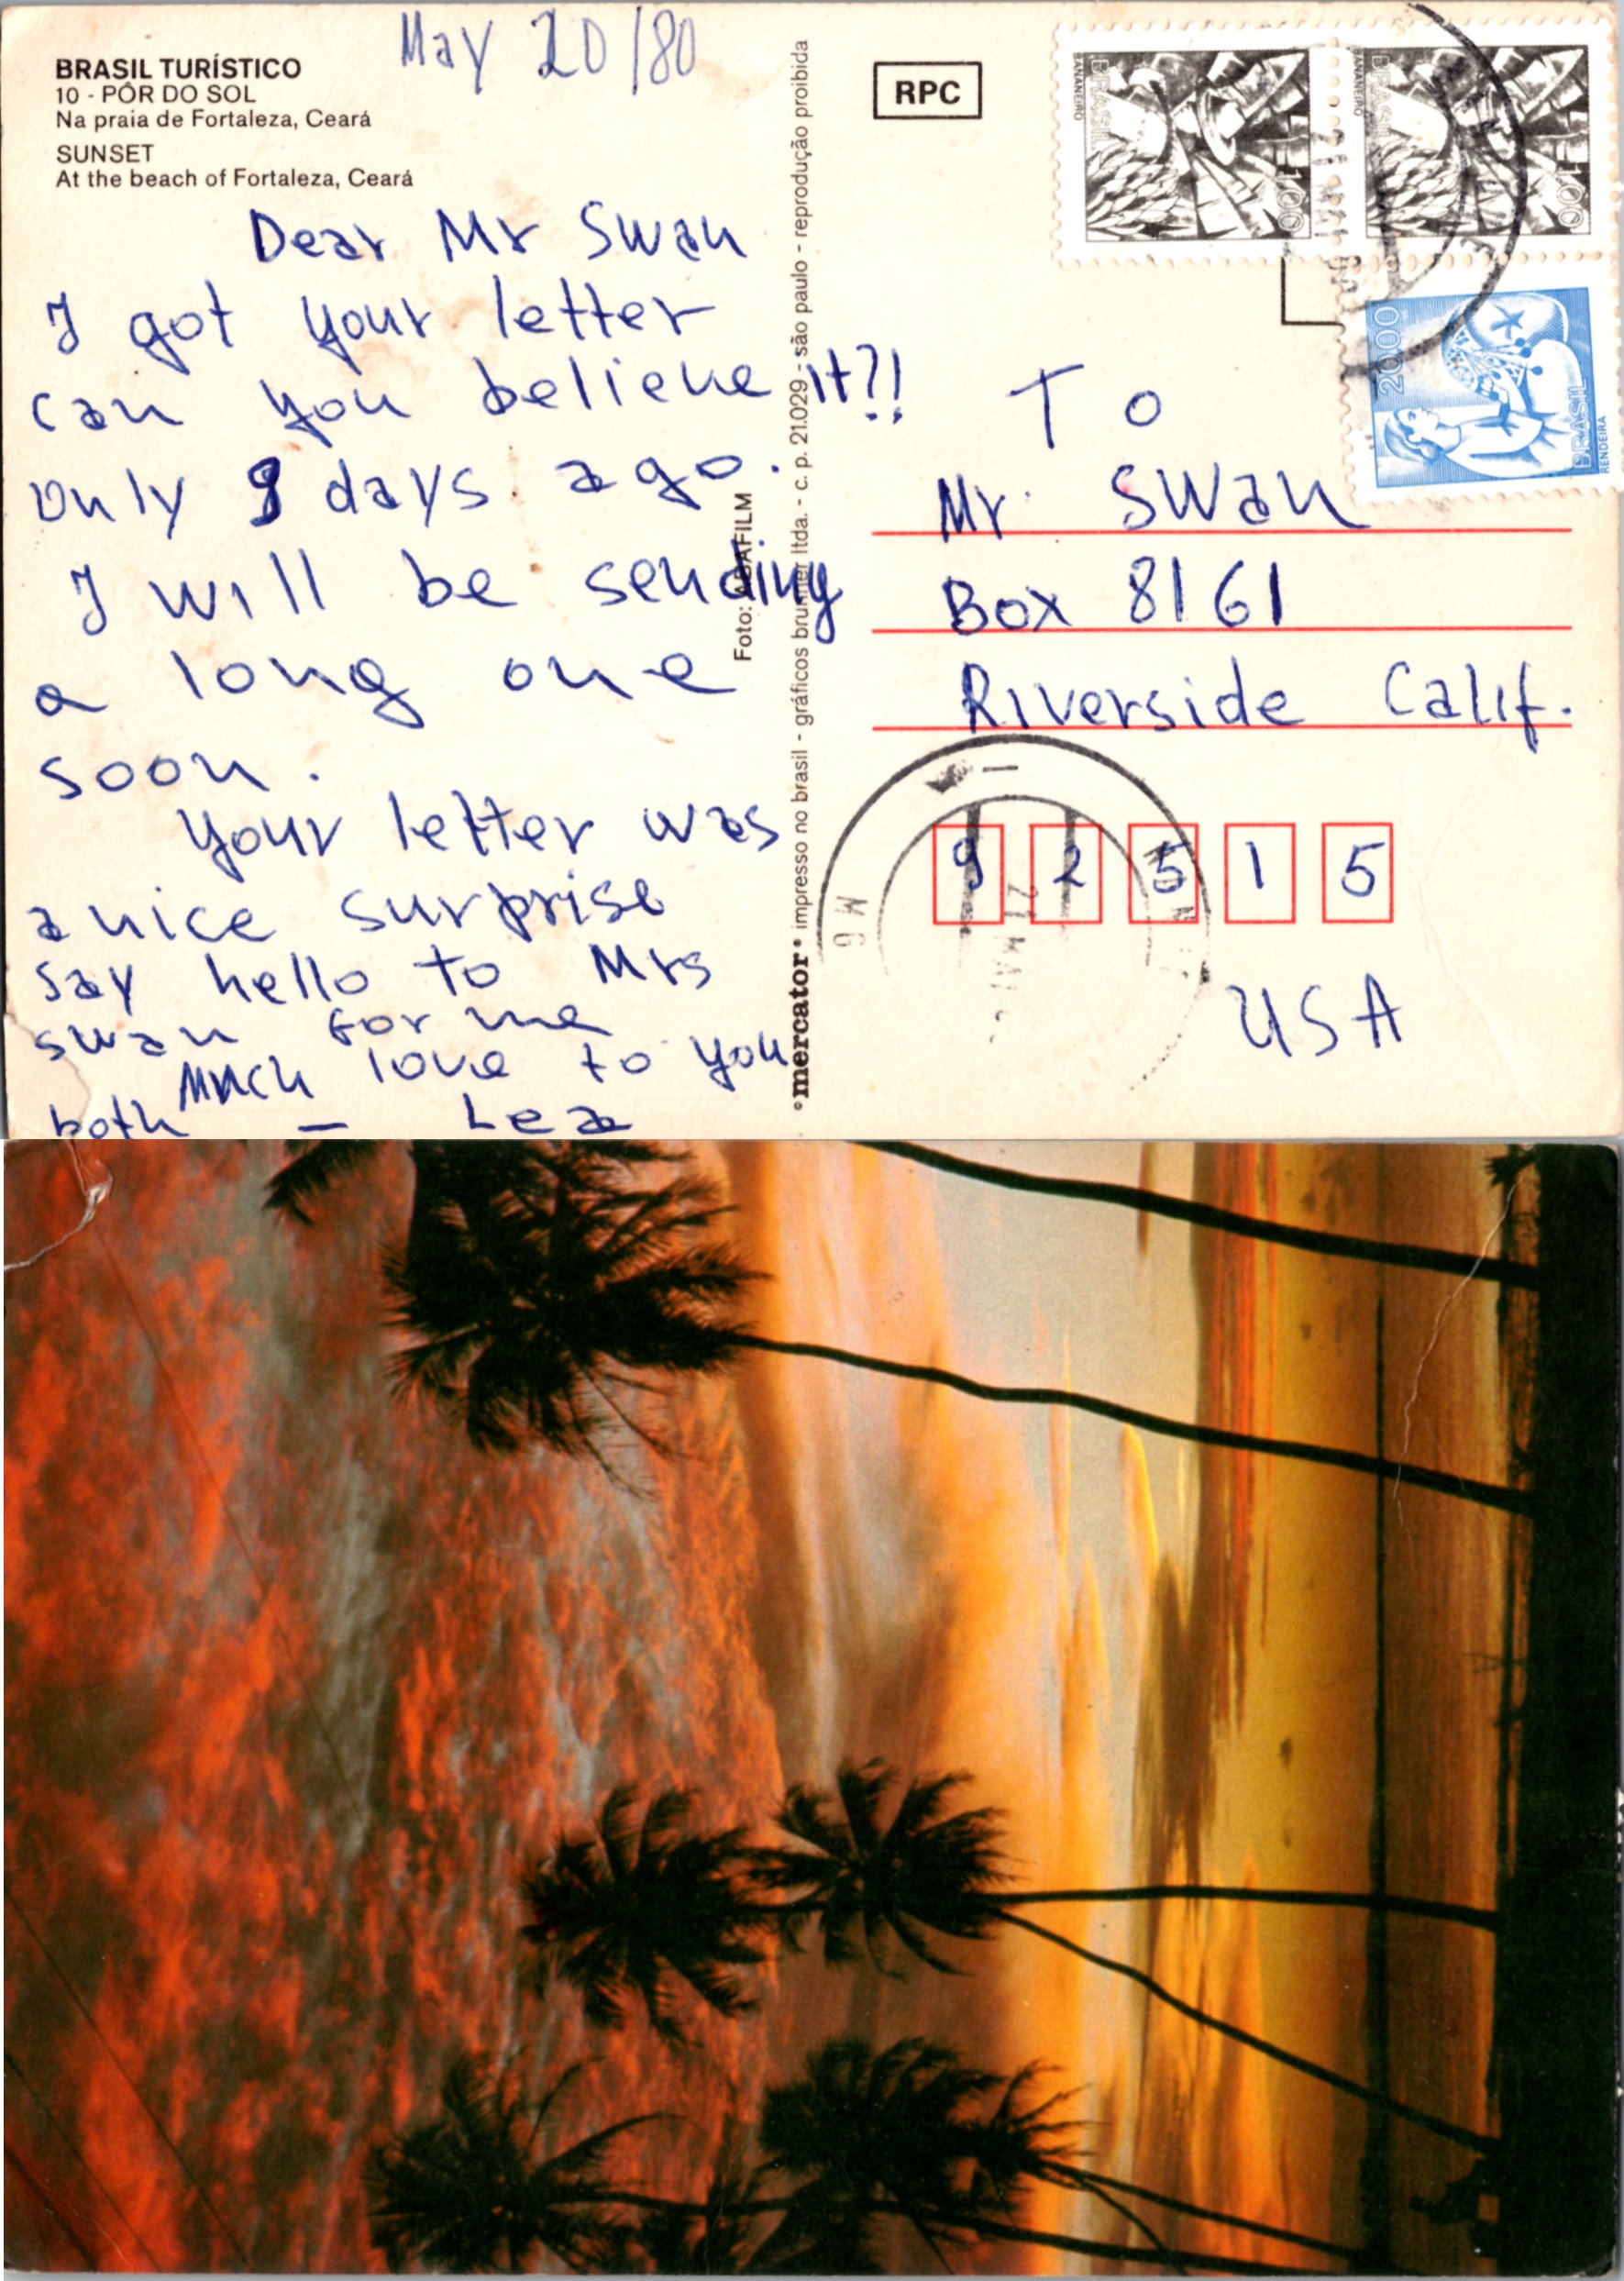 May 20/80
BRASIL TURÍSTICO
10 - PÔR DO SOL
Na praia de Fortaleza, Ceará
SUNSET
At the beach of Fortaleza, Ceará
Dear Mr Swan
I got your letter
can you believe it?!
only 9 days ago.
I will be sending
a long one
soon.
Your letter was
a nice surprise
say hello to Mrs
swan for me
Much love to you
both – Lea
Foto: ABAFILM
©mercator® impresso no brasil - gráficos brunner ltda. - c. p. 21.029 - são paulo - reprodução proibida
RPC
BRASIL
BANANEIRO
100
BRASIL
BANANEIRO
100
2000
BRASIL
RENDEIRA
To
Mr. Swan
Box 8161
Riverside Calif.
92515
USA
MG